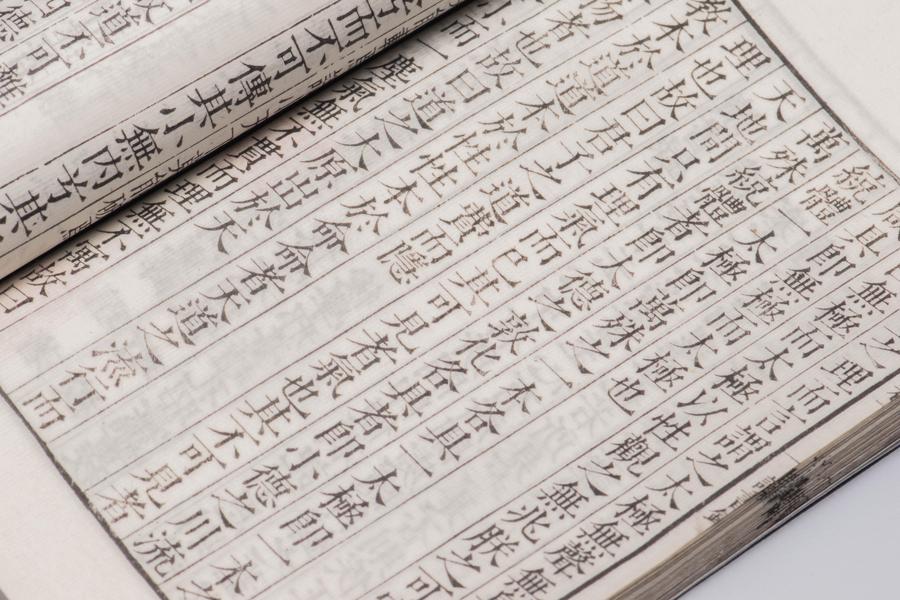 之理而言謂之太極無聲無
無極而太極以性觀之無兆朕之可
其即無極而太極也
統體一太極即萬殊之一本各具一太極即一本之
萬殊統體者即大德之敦化各具者即小德之川流
天地間只有理氣而已其可見者氣也其不可見者
理也故曰君子之道費而隱
敎本於道道本於性性本於命命者天道之流行而
物者也故曰道之大原出於天
小而一塵氣無不貫而理無不寓故曰
而不可傳其小無內
道不可離